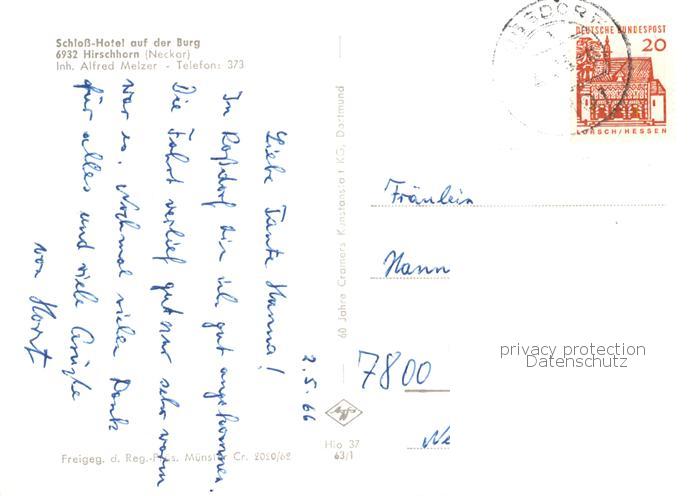 Schloß-Hotel auf der Burg
6932 Hirschhorn (Neckar)
Inh. Alfred Melzer - Telefon: 373
2.5.66
Liebe Tante Hanna!
In Roßdorf bin ich gut angekommen.
Die Fahrt verlief gut nur sehr warm
war es. Nochmal vielen Dank
für alles und viele Grüße
von Horst
Freigeg. d. Reg.-Präs. Münster Cr. 2020/62
60 Jahre Cramers Kunstanstalt KG, Dortmund
Hio 37
63/1
DEUTSCHE BUNDESPOST
20
LORSCH/HESSEN
Fräulein
Hann
7800
Ne
privacy protection
Datenschutz